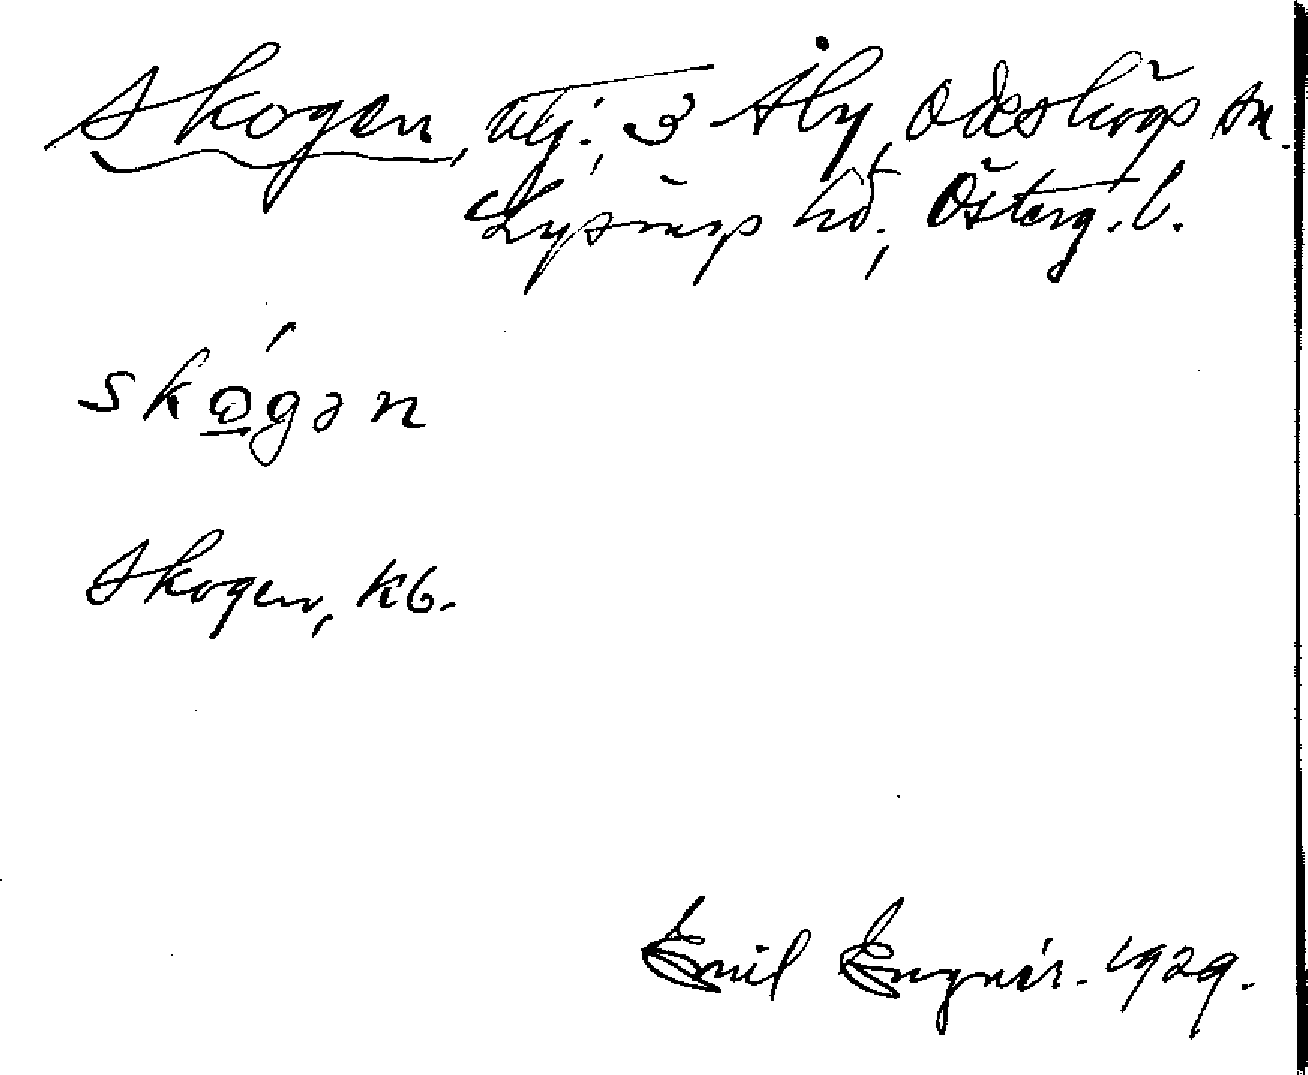 Skogen, utj. 3 Åby, Ödeshögs sn.
Lysings hd., Österg. l.
skógən
Skogen, Kb.
Emil Engnér. 1929.